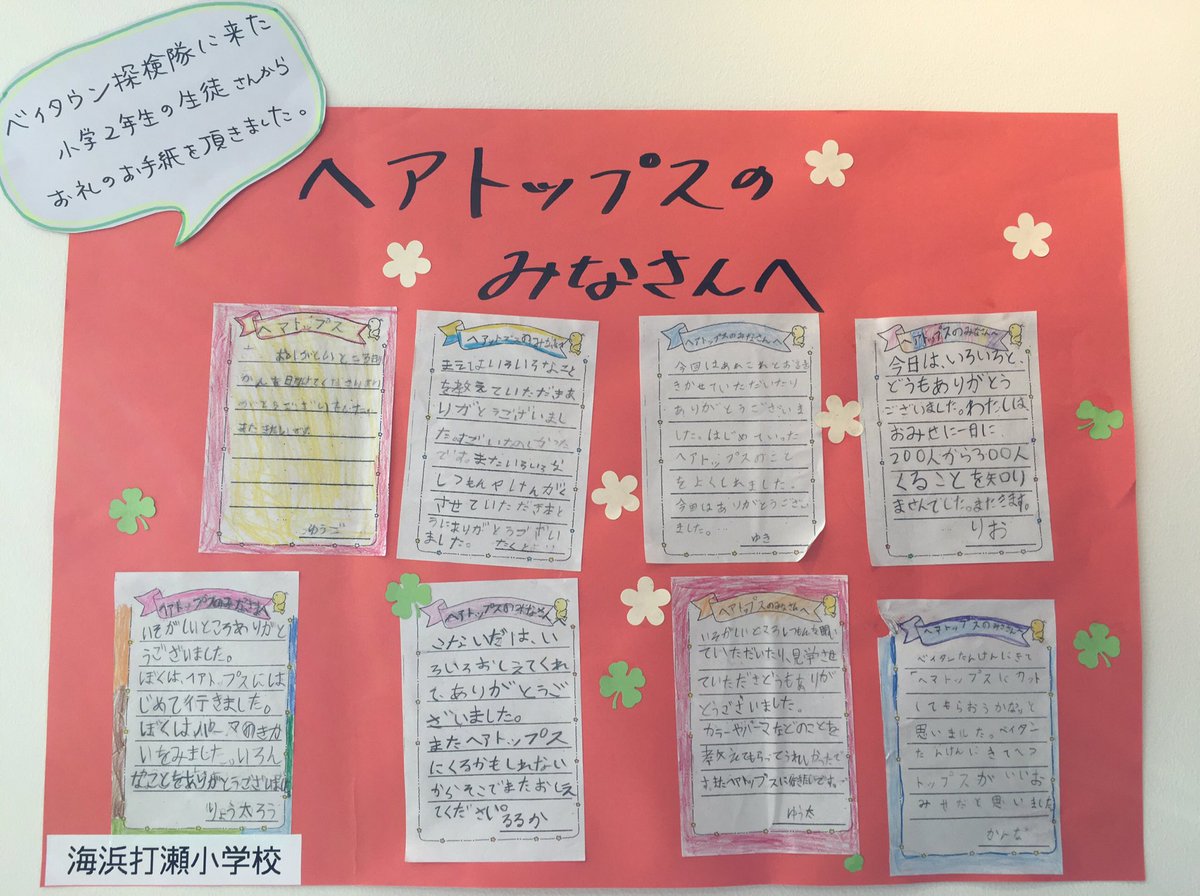 ベイタウン探検隊に来た
小学2年生の生徒さんから
お礼のお手紙を頂きました。
ヘアトップスの
みなさんへ
ヘアトップス
ゆうご
まえはいろいろなこと
を教えていただきあ
りがとうございまし
た。すごいたのしかった
です。またいろいろな
しつもんやけんがく
させていただきまと
うにありがとうござい
ました。
ヘアトップスのみなさんへ
今回はあれこれとお話を
きかせていただいたり
ありがとうございま
した。はじめていった
ヘアトップスのこと
をよくしれました。
今回はありがとうござい
ました。
ゆき
ヘアトップスのみなさんへ
今日は、いろいろと、
どうもありがとう
ございました。わたしは、
おみせに一日に
200人から300人
くることを知り
ませんでした。またきます。
りお
ヘアトップスのみなさんへ
いそがしいところありがと
うございました。
ぼくは、ヘアトップスには
じめて行きました。
ぼくはパーマのきか
いをみました。いろん
なことをありがとうございました
りょう太ろう
ヘアトップスのみなさん
こないだは、い
ろいろおしえてくれ
て、ありがとうご
ざいました。
またヘアトップス
にくるかもしれない
からそこでまたおしえ
てください。
るるか
ヘアトップスのみなさんへ
いそがしいところしつもんを聞い
ていただいたり、見学させ
ていただきどうもありが
とうございました。
カラーやパーマなどのことを
教えてもらってうれしかったで
す。またヘアトップスに行きたいです。
ゆう太
ヘアトップスのみなさんへ
ベイタンたんけんにきて
「ヘアトップスにカット
してもらおうかな。」と
思いました。ベイタン
たんけんにきてヘア
トップスがいいお
みせだと思いました
海浜打瀬小学校